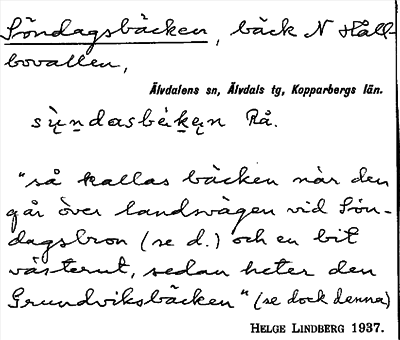 Söndagsbäcken, bäck N Håll-
bovallen,
Älvdalens sn, Älvdals tg, Kopparbergs län.
Rå.
"så kallas bäcken när den
går över landsvägen vid Sön-
dagsbron (se d.) och en bit
västerut, sedan heter den
Grundviksbäcken" (se dock denna)
HELGE LINDBERG 1937.